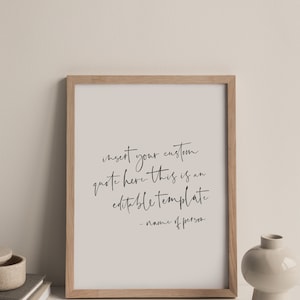 insert your custom
quote here this is an
editable template
- name of person